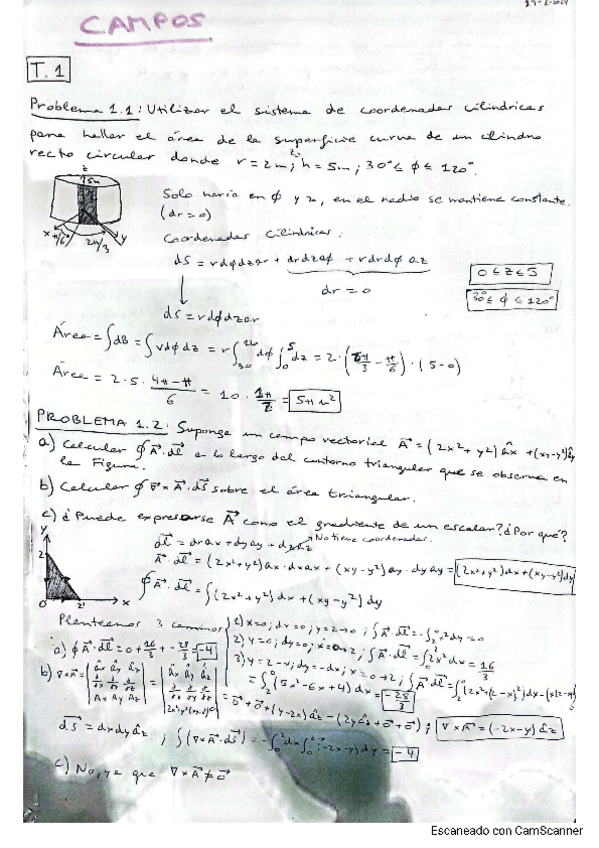 CAMPOS
T.1
Problema 1.1: Utilizar el sistema de coordenadas cilíndricas
para hallar el área de la superficie curva de un cilindro
recto circular donde r = 2m; h = 5m; 30° ≤ ϕ ≤ 120°.
z
5m
x
π/6
2π/3
y
Solo varía en ϕ y z, en el radio se mantiene constante.
(dr = 0)
Coordenadas cilíndricas:
dS = rdϕdzar + drdzaϕ + rdrdϕ az
dr = 0
0 ≤ z ≤ 5
30° ≤ ϕ ≤ 120°
ds = rdϕdzar
Área = ∫ = ∫rdϕ dz = r∫ dϕ ∫₀⁵ dz = 2 · ( - π/6) · (5-0)
Área = 2 · 5 · (4π - π)/6 = 10 · = 5π m²
PROBLEMA 1.2: Suponga un campo vectorial A = (2x² + y²) âx + (xy-y²)ây
a) Calcular ∮ A · dl a lo largo del contorno triangular que se observa en
la Figura.
b) Calcular ∮ ∇ × A · dS sobre el área triangular.
c) ¿Puede expresarse A como el gradiente de un escalar? ¿Por qué?
y
2
0
2
x
dl = dxax + dyay +
No tiene coordenadas.
A · dl = (2x²+y²) ax · dxax + (xy-y²) ay · dy ay = (2x²+y²)dx+(xy-y²)dy
∮ A · dl = ∫(2x²+y²) dx + (xy-y²) dy
Planteamos 3 caminos
1) x=0; dx=0; y=2→0; ∫A·dl = -∫ y²dy
2) y=0; dy=0; x=0→2; ∫A·dl = ∫₀² 2x² dx = 16/3
3) y=2-x; dy=-dx; ∫A·dl =
= ∫ (5x²-6x+4) dx = -28/3
a) ∮ A·dl = 0 + 16/3 + -28/3 = -4
b) ∇×A = ; ∇×A = (-2x-y) âz
dS = dxdy âz ; ∫(∇×A · dS) = = -4
c) No, ya que ∇×A ≠ 0
Escaneado con CamScanner